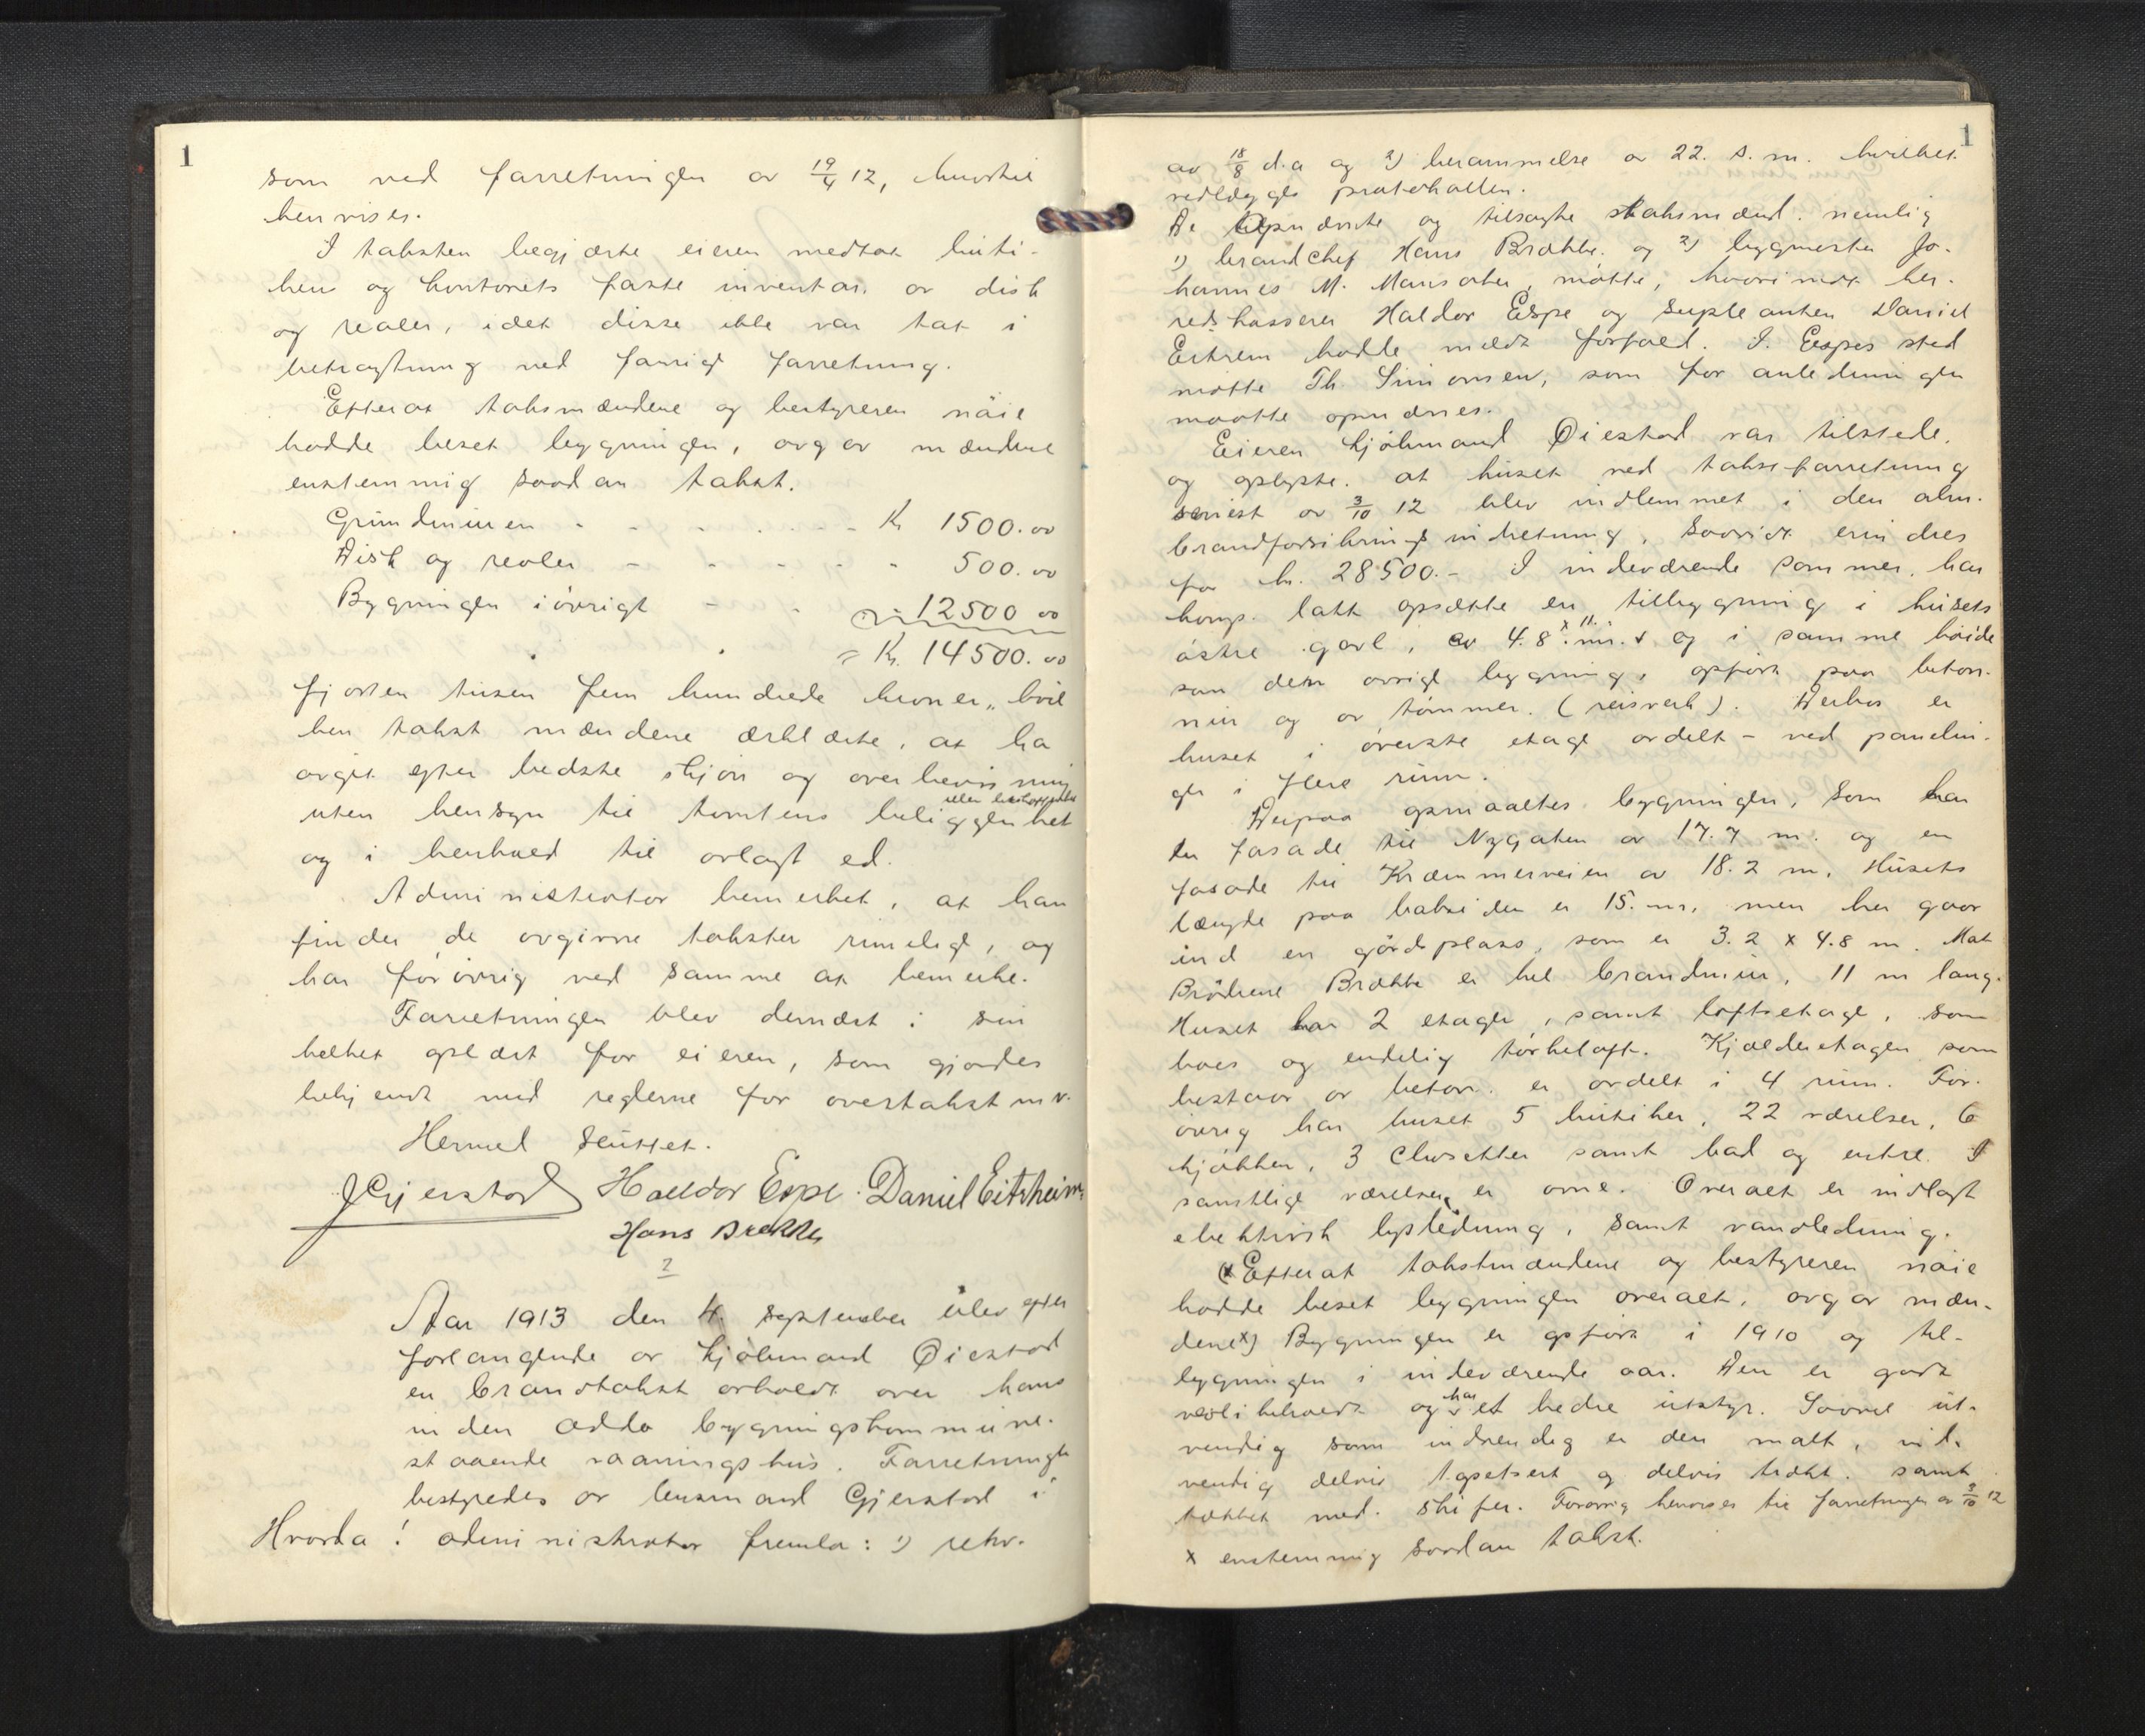 1
som ved forretningen av 19/4 12, hvortil
henvises.
I taksten begjærte eieren medtat buti-
ken og kontorets faste inventar av disk
og reoler, idet disse ikke var tat i
betragtning ved forrige forretning.
Efterat taksmændene og bestyreren nøie
hadde beset bygningen, avgav mændene
enstemmig saadan takst.
Grundmuren - - - - - - Kr 1500.00
Disk og reoler - - - - - 500.00
Bygningen iøvrigt - - - 12500 00
= Kr. 14500.00
fjorten tusen fem hundrede kroner, hvil
ken takst mændene erklærte, at ha
avgit efter bedste skjøn og overbevisning
uten hensyn til tomtens beliggenhet eller beskaffenhet
og i henhold til avlagt ed.
Administrator bemerket, at han
finder de avgivne takster rimelige, og
har forøvrig ved samme at bemerke.
Forretningen blev dernæst i sin
helhet oplæst for eieren, som gjordes
bekjendt med reglerne for overtakst m.v.
Hermed sluttet.
JGjerstad Halldor Espe. Daniel Eitrheim,
Hans Brække
2
Aar 1913 den 4. september blev efter
forlangende av kjøbmand Øiestad
en brandtakst avholdt over hans
inden Odda bygningskommune
staaende vaaningshus. Forretningen
bestyredes av lensmand Gjerstad i
Hvorda! administrator fremla: 1) rekv.
1
av 18/8 d.a og 2) berammelse av 22. s.m. hvilket
vedlægges protokollen.
De opnævnte og tilsagte skaksmænd. nemlig
1) brandchef Hans Brække. og 2) bygmester Jo-
hannes M. Mansaker, møtte, hvorimot her-
redskasserer Haldor Espe og supleanten Daniel
Eitrem hadde meldt forfald. I Espes sted
møtte Th. Simonsen, som for anledningen
maatte opnævnes.
Eieren kjøbmand Øiestad var tilstede,
og oplyste. at huset ved taksforretning
senest av 3/10 12 blev indlemmet i den alm.
brandforsikringsindretning, saavidt erindres
for kr. 28500.- I indeværende sommer, har
komp. latt opsætte en tilbygning i husets
østre gavl, av 4.8 x 11. m. og i samme høide
som den øvrige bygning, opført paa beton-
mur og av tømmer. (reisverk). Derhos er
huset i øverste etage avdelt - ved panelin-
ger i flere rum.
Derpaa opmaaltes bygningen, som har
en fasade til Nygaten av 17.7 m. og en
fasade til Kræmmerveien av 18.2 m. Husets
længde paa baksiden er 15. m, men her gaar
ind en gårdsplass, som er 3.2 x 4.8 m. Mot
Brødrene Brække er hel brandmur, 11 m lang.
Huset har 2 etager, samt loftsetage, som
boes og endelig tørkeloft. Kjælderetagen som
bestaar av beton. er avdelt i 4 rum. For-
øvrig har huset 5 butiker, 22 værelser, 6
kjøkken, 3 closetter samt bad og entre. I
samtlige værelser er ovne. Overalt er indlagt
elektrisk lysledning, samt vandledning.
(x Efterat takstmændene og bestyreren nøie
hadde beset bygningen overalt, avgav mæn-
dene x) Bygningen er opført i 1910 og til-
bygningen i indeværende aar. Den er godt
vedlikeholdt og har et bedre utstyr. Saavel ut-
vendig som indvendig er den malt, ind-
vendig delvis tapetsert og delvis trækt. samt
tækket med. skifer. Forøvrig henvises til forretningen av 3/10 12
x enstemmig saadan takst.